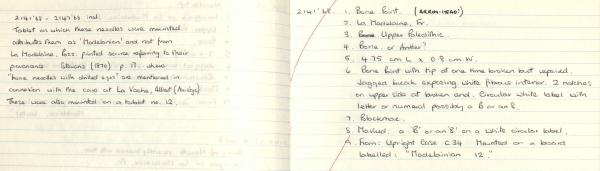 2141'68 - 2147'68 incl.
Tablet on which these needles were mounted
attributes them as 'Madelainian' and not from
La Madelaine, Poss. printed source referring to their
provenance Stevens (1870) p. 17. where
"bone needles with drilled eyes" are mentioned in
connection with the cave at La Vache, Alliat (Ariège)
These were also mounted on a tablet no. 12.
2141'68. 1. Bone Point. (ARROW-HEAD?)
2. La Madelaine, Fr.
3. Upper Paleolithic.
4. Bone. or Antler?
5. 4.75 cm L x 0.8 cm W.
6. Bone Point with tip at one time broken but repaired.
Jagged break exposing white fibrous interior. 2 notches
on upper side at broken end. Circular white label with
letter or numeral possibly a B or an 8.
7. Blackmore.
8. Marked: a 'B' or an '8' on a white circular label.
9. From: Upright Case C34 Mounted on a board
labelled: "Madelainian 12."